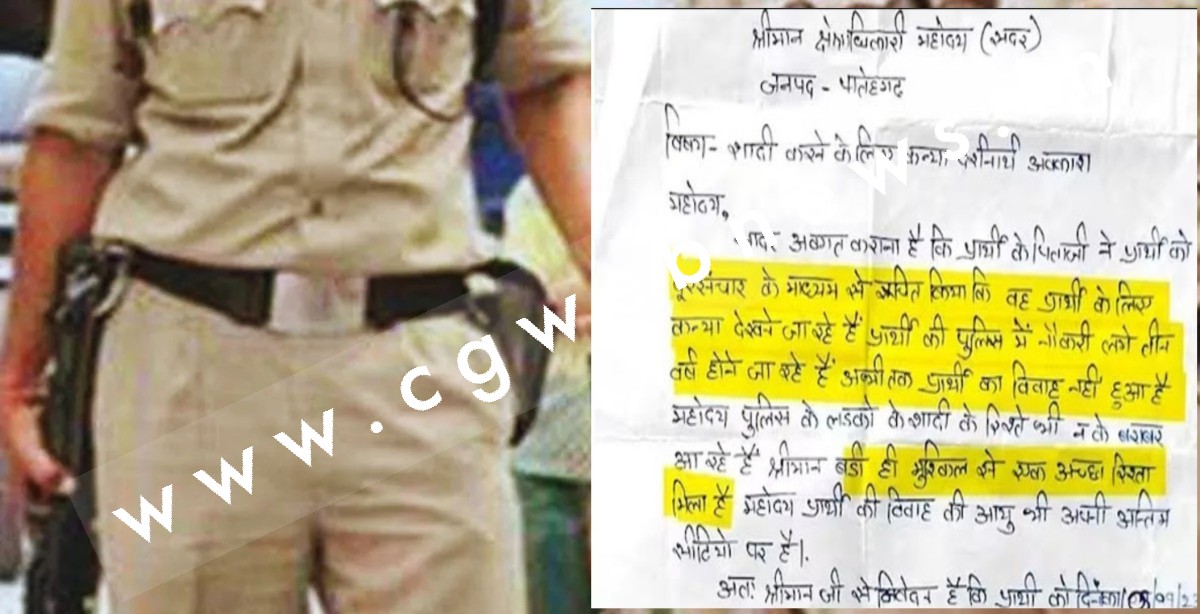 श्रीमान क्षेत्राधिकारी महोदय (सदर)
जनपद - फतेहगढ़
विषय- शादी करने के लिए कन्या दर्शनार्थ अवकाश
महोदय,
सादर अवगत कराना है कि प्रार्थी के पिताजी ने प्रार्थी को
दूरसंचार के माध्यम से सूचित किया कि वह प्रार्थी के लिए
कन्या देखने जा रहे हैं प्रार्थी की पुलिस में नौकरी लगे तीन
वर्ष होने जा रहे हैं अभी तक प्रार्थी का विवाह नहीं हुआ है
महोदय पुलिस के लडको के शादी के रिश्ते भी न के बराबर
आ रहे हैं श्रीमान बडी ही मुश्किल से एक अच्छा रिश्ता
मिला है महोदय प्रार्थी की विवाह की आयु भी अपनी अन्तिम
सीढियो पर है।
अतः श्रीमान जी से निवेदन है कि प्रार्थी को दिनांक
www.cgw
ws.